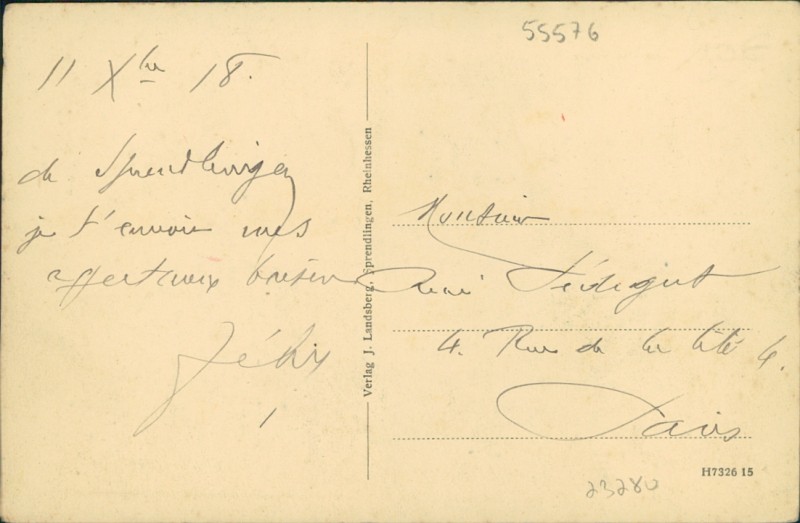 55576
11 Xbre 18.
de Sprendlingen
je t'envoie mes
affectueux baisers
Félix
Verlag J. Landsberg, Sprendlingen, Rheinhessen
Monsieur
René
4. Rue de la Cité 4.
Paris
H7326 15
23280